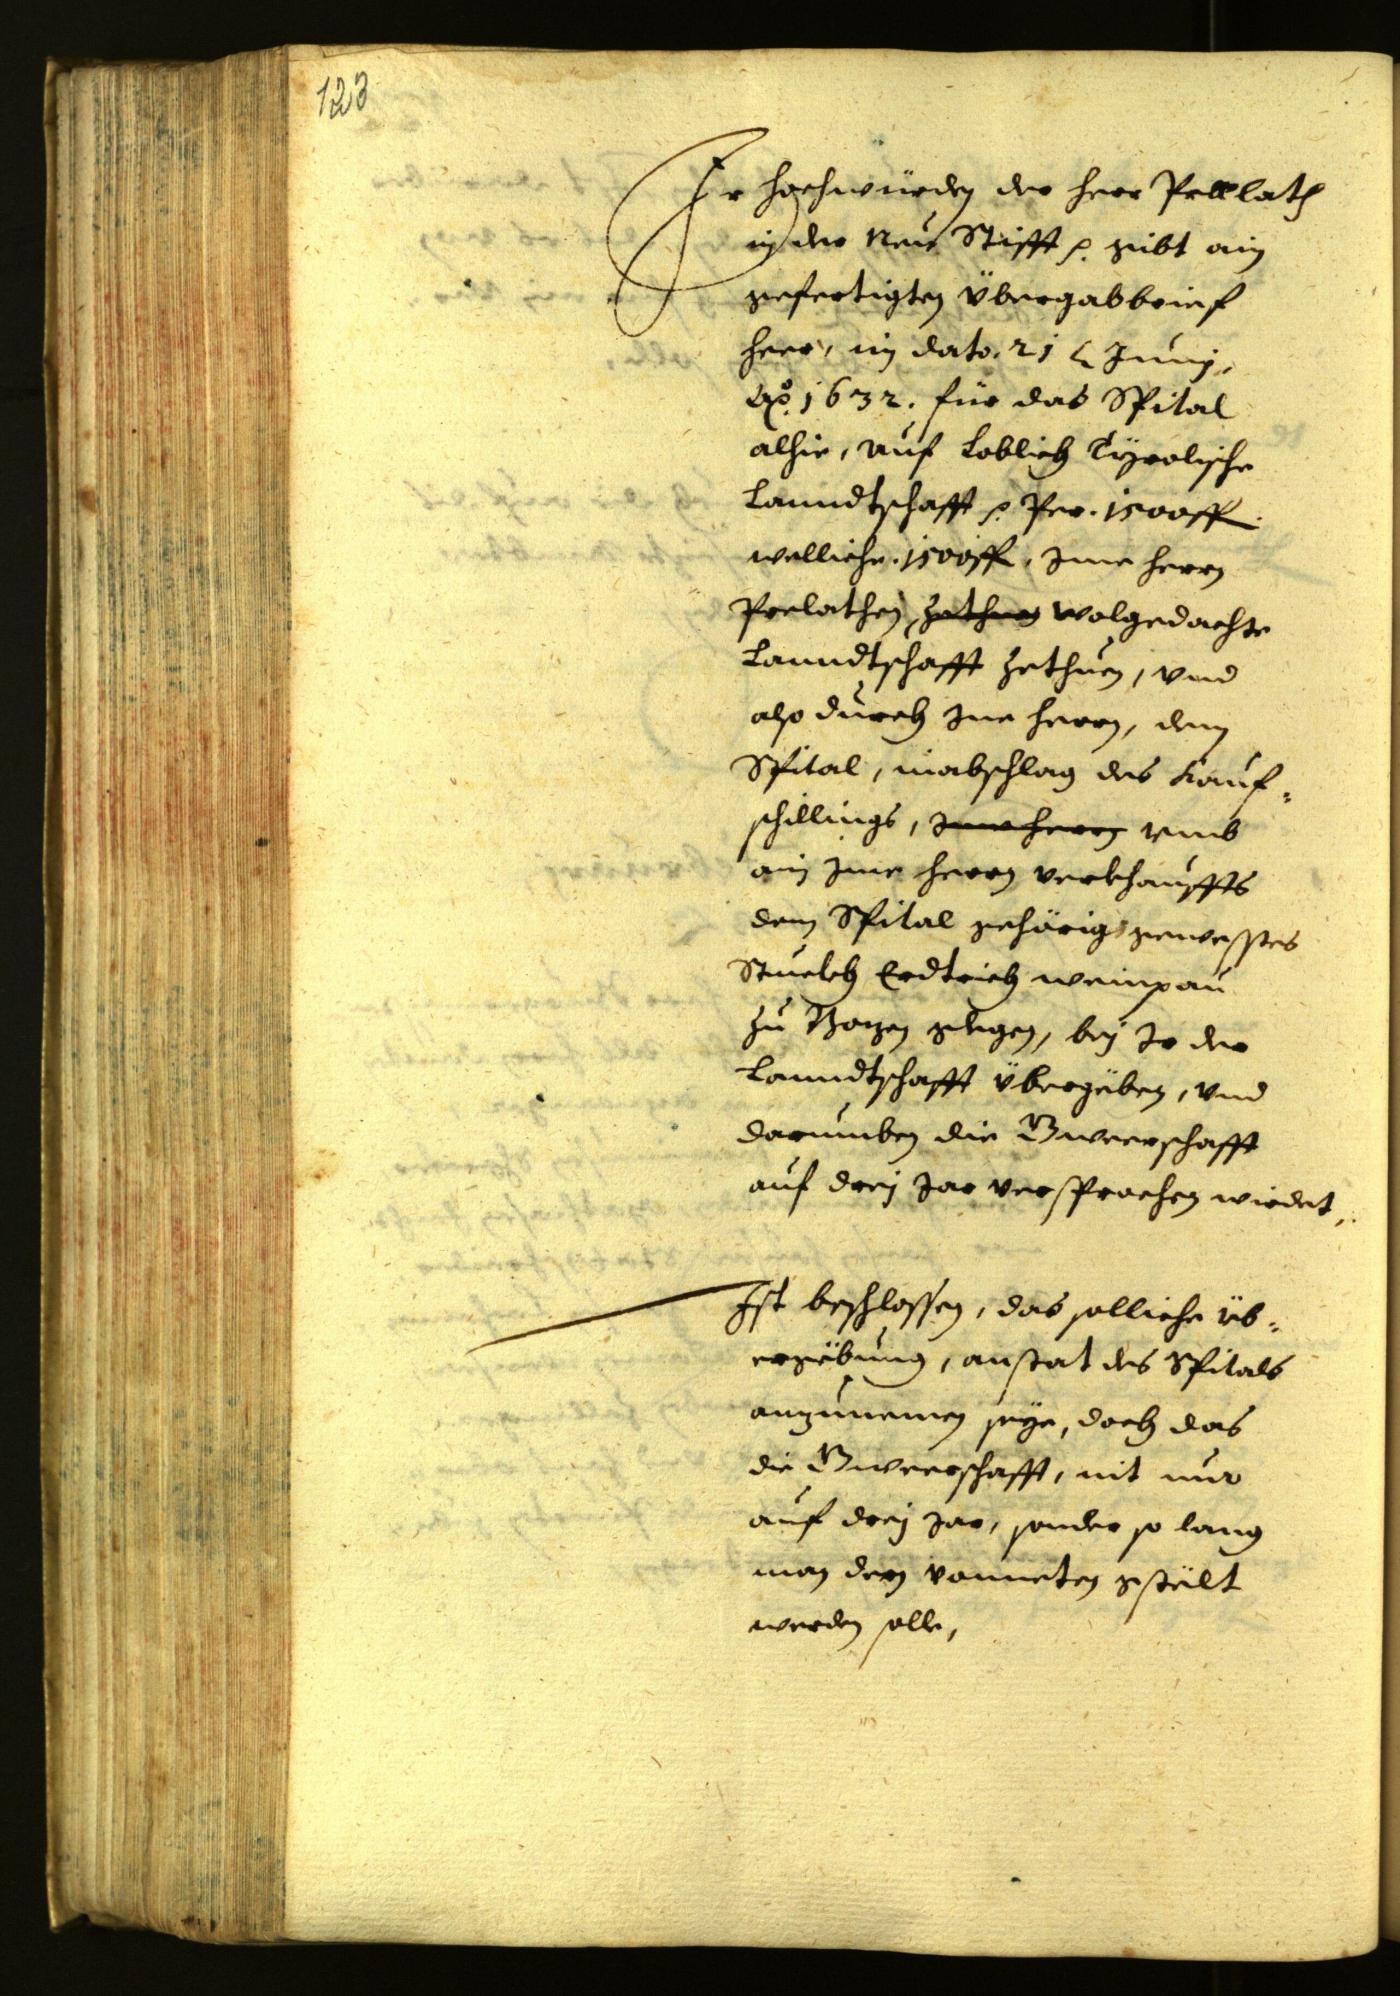 123
Ir hochwürden der herr Prellath
in der Neu Stifft r. gibt ain
gefertigten Übergabbrief
herr, in dato. 21 Junij,
Aõ. 1632. für das Spital
alhie, auf Loblich Tÿrolische
Lanndtschafft r. Per. 1500 ff
welliche. 1500 ff, Ime herrn
Prelathen, zethuen wolgedachte
Lanndtschafft zethuen, vnd
also durch Ine herrn, dem
Spital, in abschlag des Kauf-
schillings, Ime herrn vmb
ain Ime herrn verkhauffts
dem Spital gehörig gewesstes
Stuckh Erdtrich weinpau
zu Bozen gelegen, bey Ir der
Lanndtschafft Übergeben, vnd
darumben die Gweerschafft
auf drey Jar versprochen wirdet,
Ist beschlossen, das solliche Üb-
ergebung, anstat des Spitals
anzunemen seye, doch das
die Gweerschafft, nit nur
auf drey Jar, sonder so lang
man dern vonneten gstelt
werden solle,